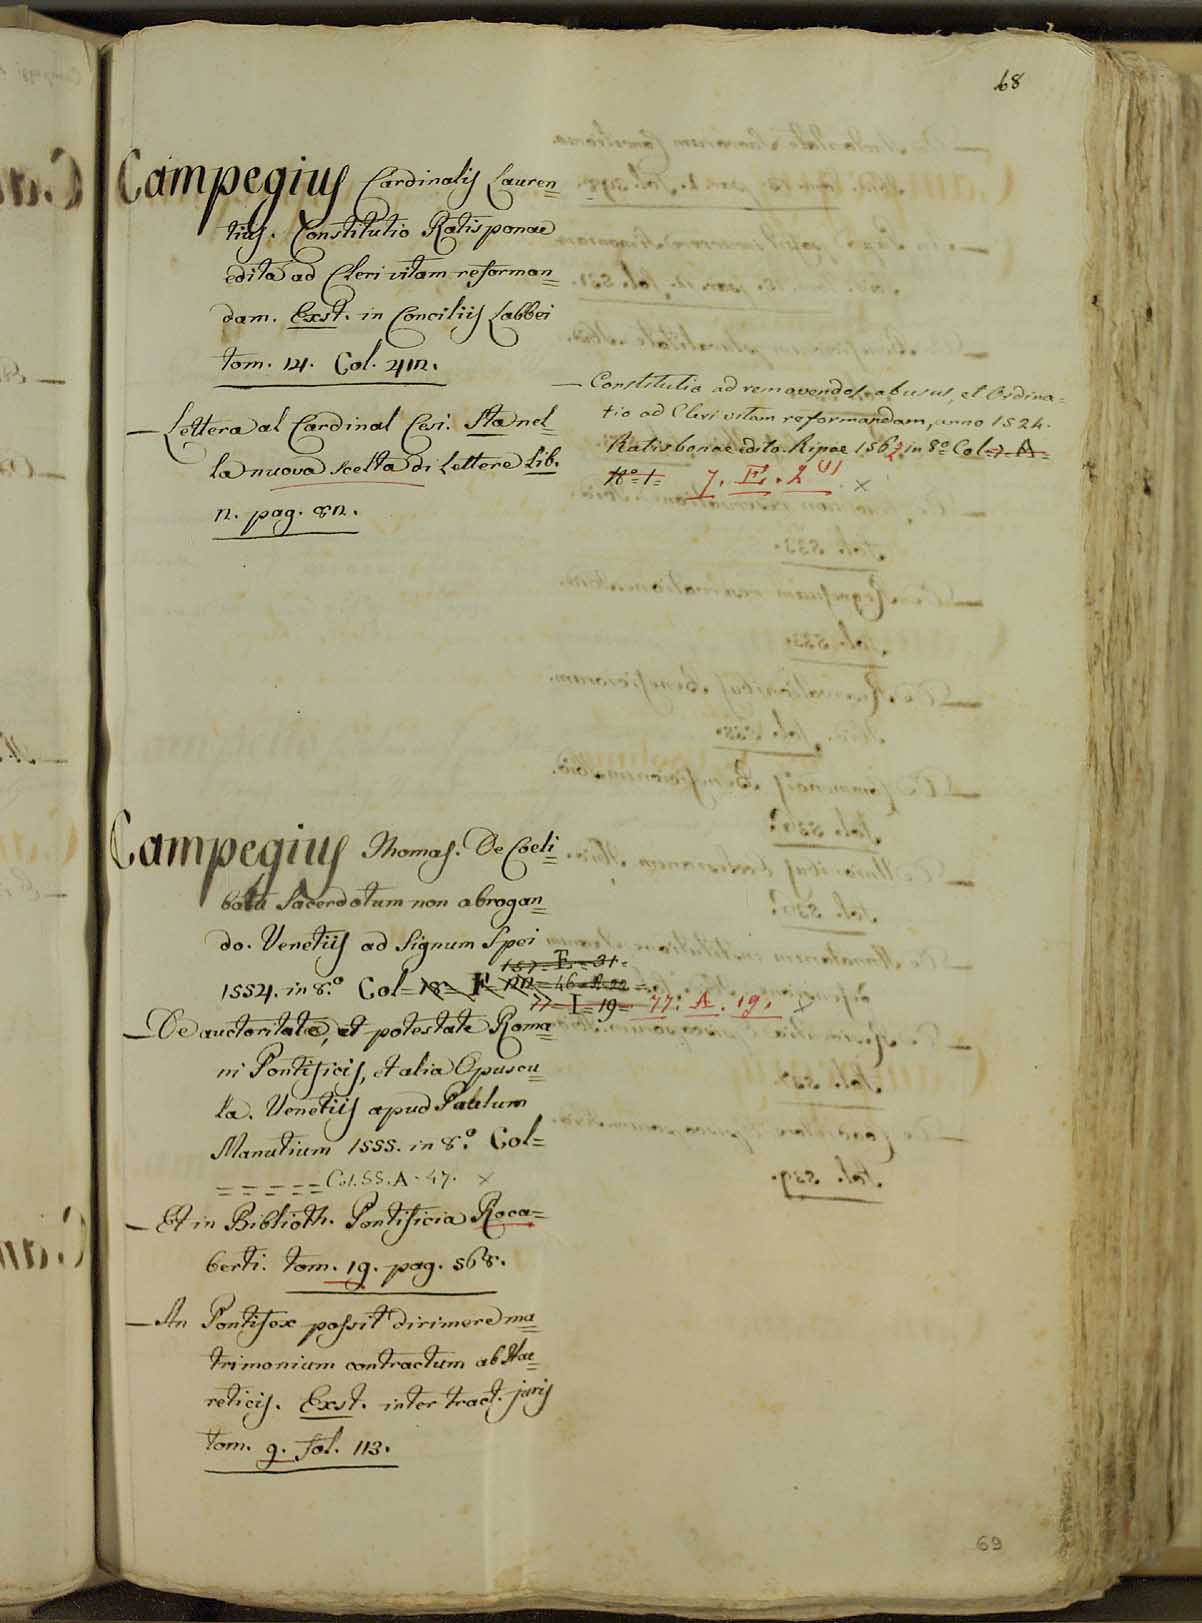 68
Campegius Cardinalis Lauren=
tius. Constitutio Ratisponae
edita ad Cleri vitam reforman=
dam. Exst. in Conciliis Labbei
tom. 14. Col. 412.
— Lettera al Cardinal Cesi. Sta nel=
la nuova scelta di Lettere Lib.
2. pag. 82.
— Constitutio ad removendos abusus, et Ordina=
tio ad Cleri vitam reformandam, anno 1524.
Ratisbonae edita. Ripae 1562 in 8º Col=7=A=
Nº 1= 7. E. 2 (1) ×
Campegius Thomas. De Coeli=
batu Sacerdotum non abrogan=
do. Venetiis ad Signum Spei
157=E=31=
1554. in 8.º Col=18= F=22=46=R.22=
77=I=19= 77. A. 19. ×
— De auctoritate, et potestate Roma=
ni Pontificis, et alia Opuscu=
la. Venetiis apud Paulum
Manutium 1555. in 8.º Col=
=====Col.55.A.47. ×
— Et in Biblioth. Pontificia Roca=
berti. tom. 19. pag. 568.
— An Pontifex possit dirimere ma=
trimonium contractum ab Hae=
reticis. Exst. inter tract. juris
tom. 9. fol. 113.
69